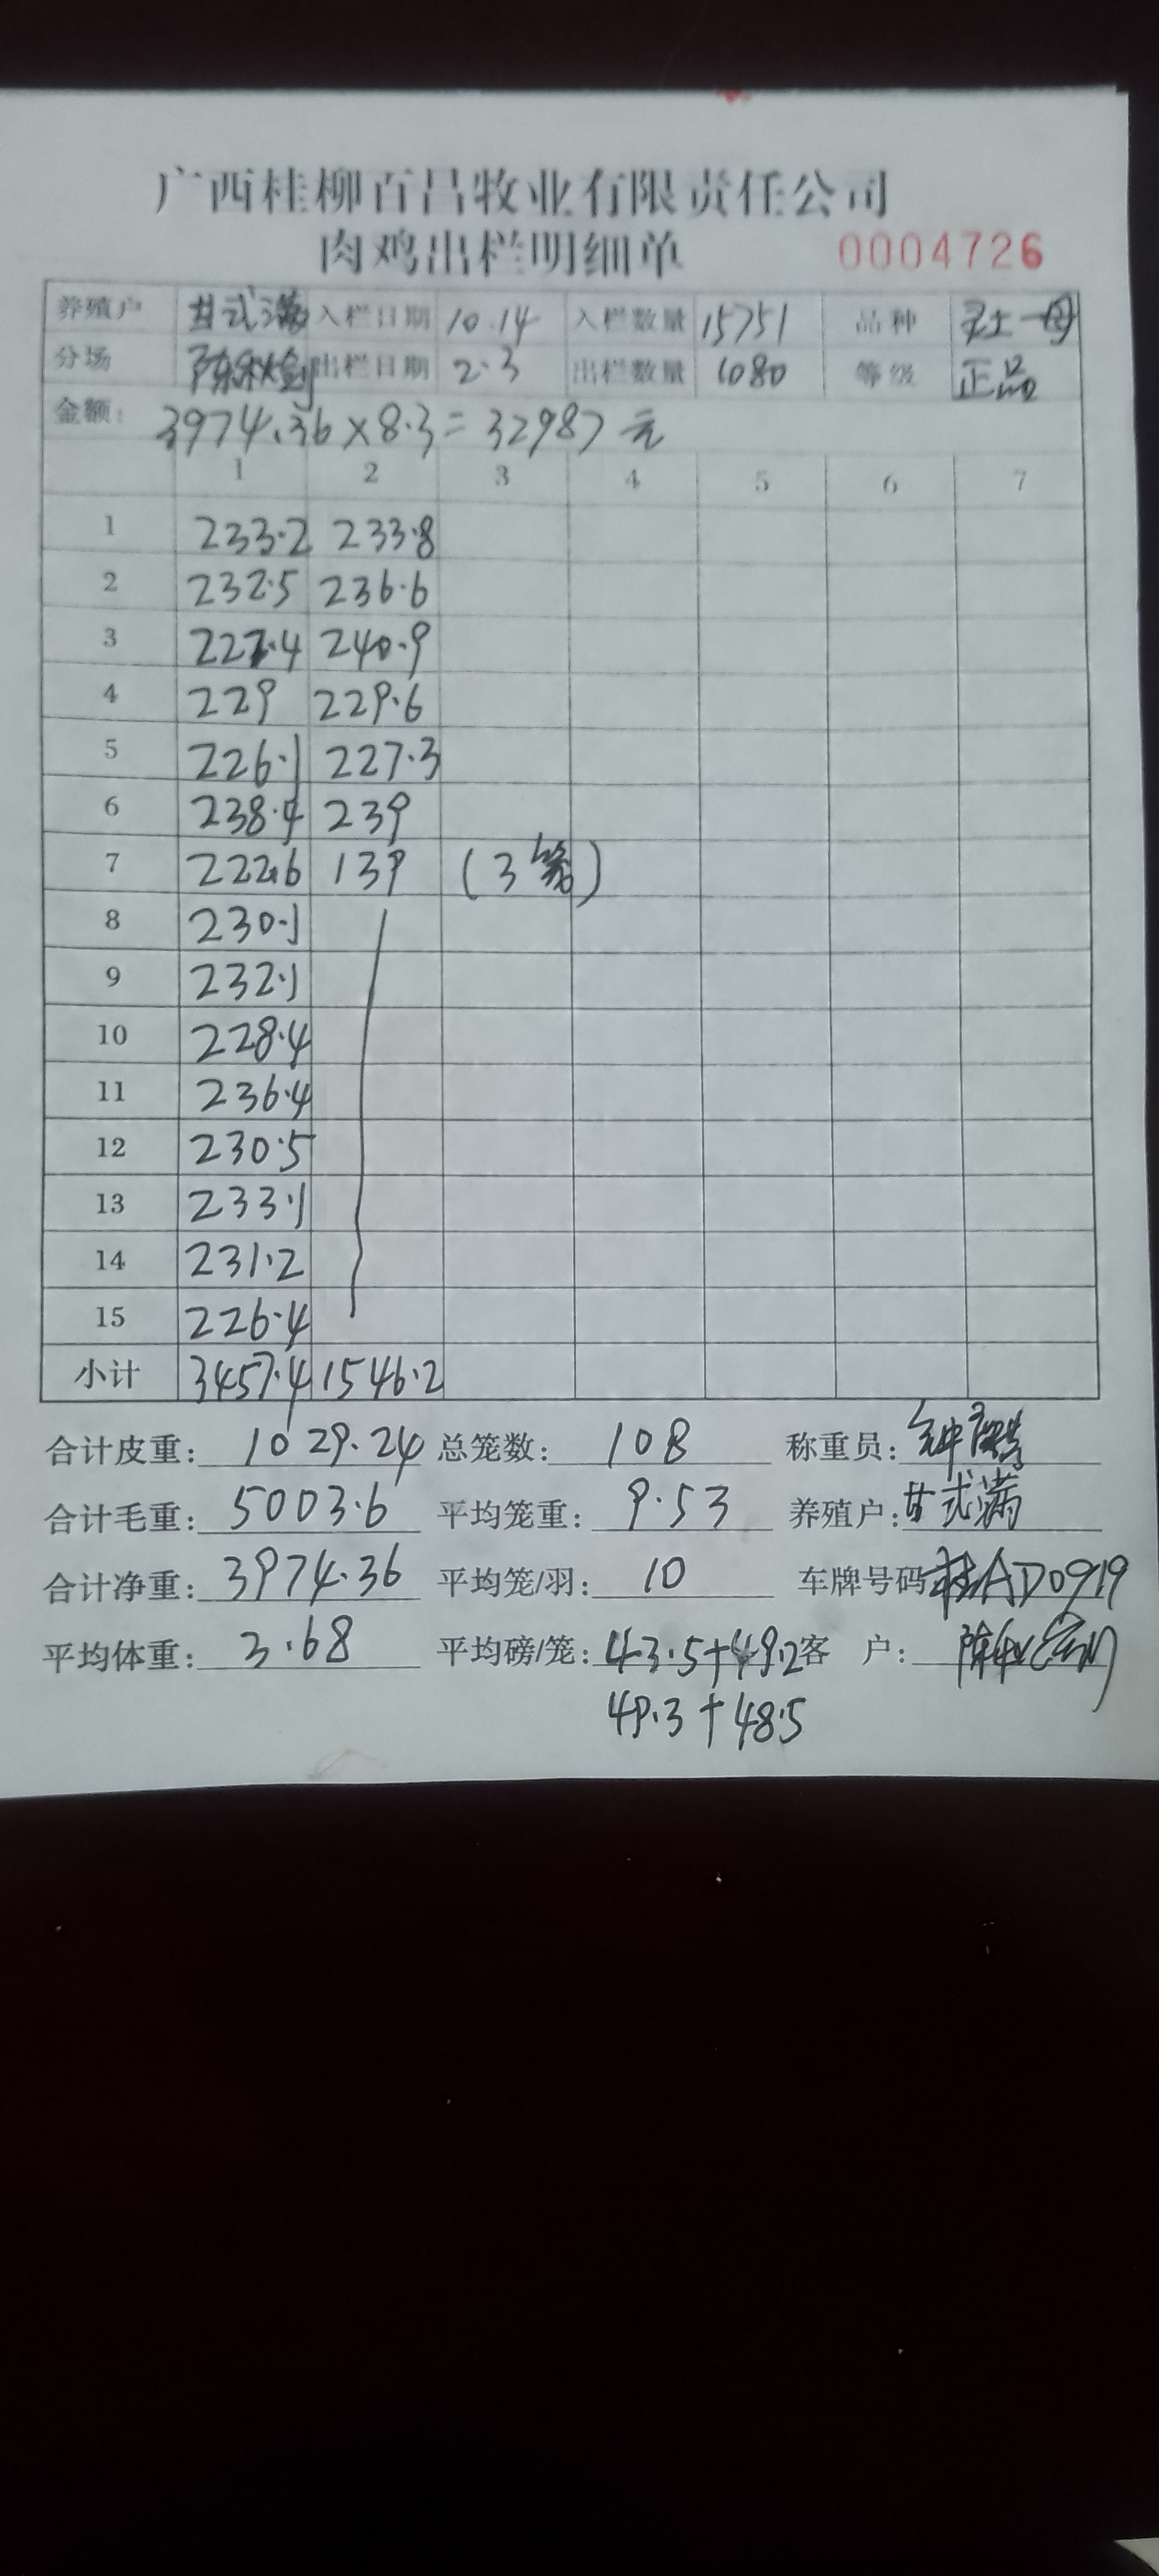 广西桂柳百昌牧业有限责任公司
肉鸡出栏明细单 0004726
养殖户 甘式满 入栏日期 10.14 入栏数量 15751 品种 灵土一母
分场 出栏日期 2.3 出栏数量 1080 等级 正品
金额: 3974.36×8.3=32987元
1 2 3 4 5 6 7
1 233.2 233.8
2 232.5 236.6
3 227.4 240.9
4 229 229.6
5 226.1 227.3
6 238.4 239
7 222.6 139 (3笼)
8 230.1
9 232.1
10 228.4
11 236.4
12 230.5
13 233.1
14 231.2
15 226.4
小计 3457.4 1546.2
合计皮重: 1029.24 总笼数: 108 称重员:
合计毛重: 5003.6 平均笼重: 9.53 养殖户: 甘式满
合计净重: 3974.36 平均笼/羽: 10 车牌号码 桂AD0919
平均体重: 3.68 平均磅/笼: 43.5+49.2 客 户:
49.3+48.5